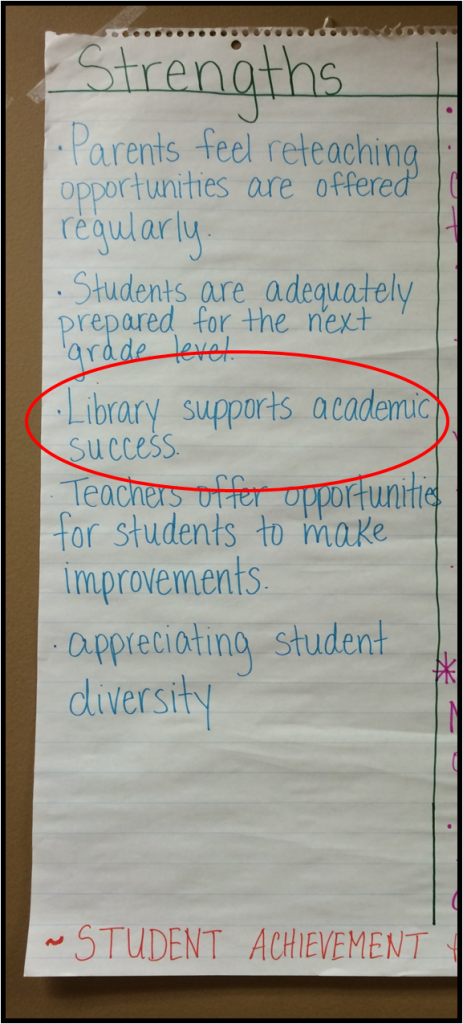 Strengths
· Parents feel reteaching
opportunities are offered
regularly.
· Students are adequately
prepared for the next
grade level.
· Library supports academic
success.
· Teachers offer opportunities
for students to make
improvements.
· appreciating student
diversity
~ STUDENT ACHIEVEMENT